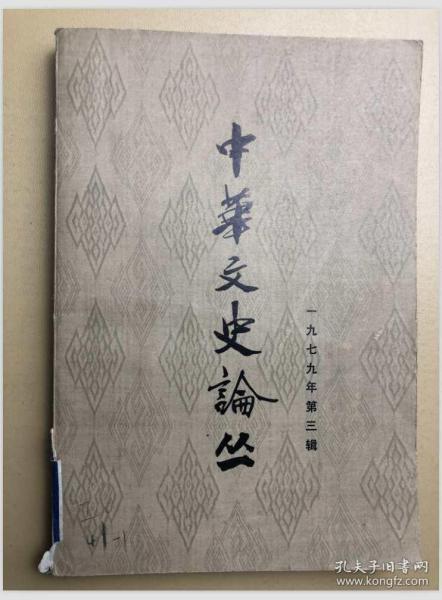 中華文史論丛
一九七九年第三辑
41-1
孔夫子旧书网
www.kongfz.com